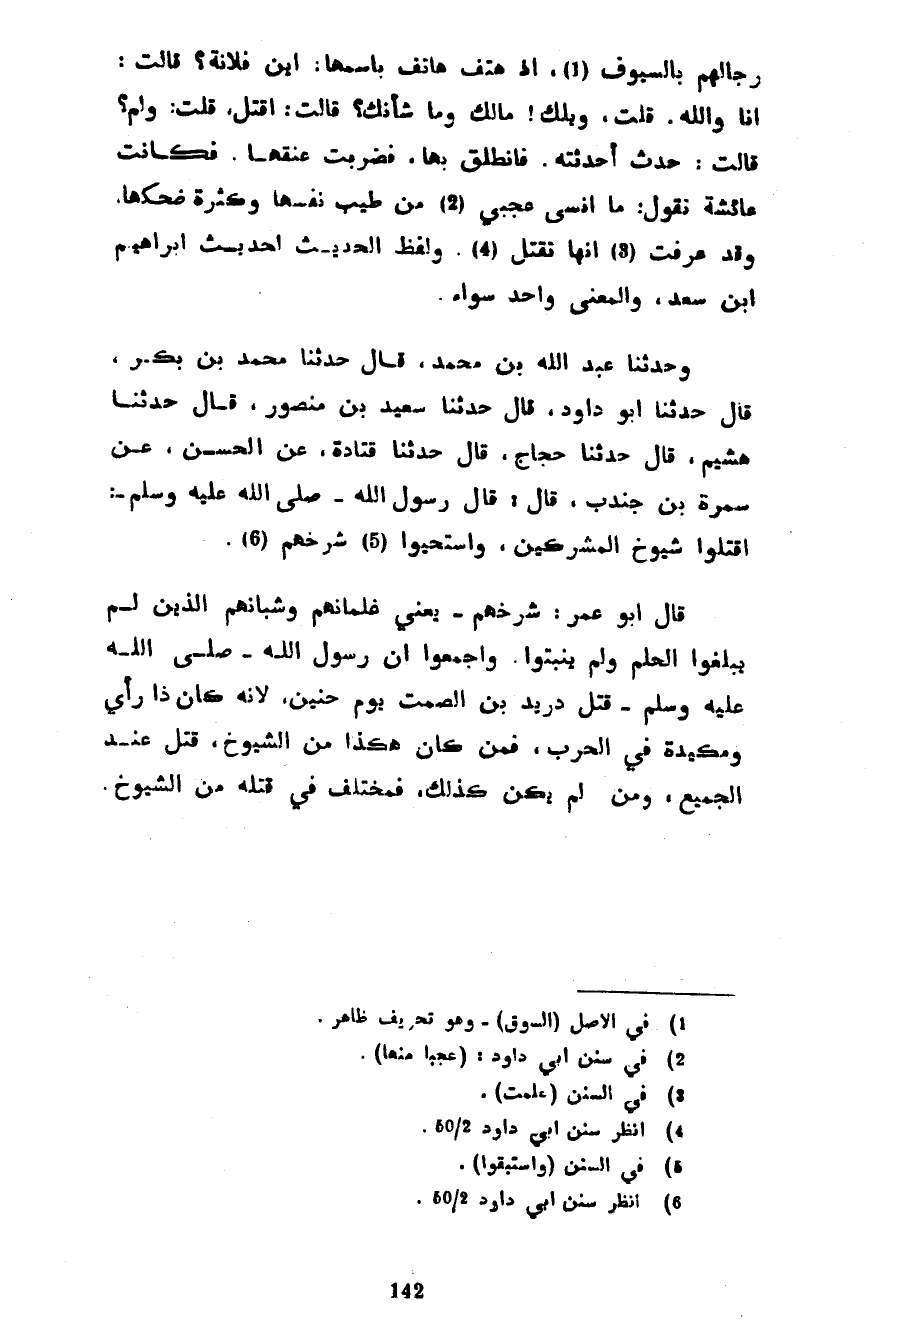 رجالهم بالسيوف (1)، اذ هتف هاتف باسمها: اين فلانة؟ قالت :
انا والله. قلت، ويلك! مالك وما شأنك؟ قالت: اقتل، قلت: ولم؟
قالت : حدث أحدثته. فانطلق بها، فضربت عنقهـا . فكـانت
عائشة تقول: ما انسى عجبي (2) من طيب نفسها وكثرة ضحكها،
وقد عرفت (3) انها تقتل (4) . ولفظ الحديـث لحديـث ابراهيم
ابن سعد، والمعنى واحد سواء .
وحدثنا عبد الله بن محمد، قـال حدثنا محمد بن بكـر ،
قال حدثنا ابو داود، قال حدثنا سعيد بن منصور ، قـال حدثنـا
هشيم، قال حدثنا حجاج، قال حدثنا قتادة، عن الحسـن ، عـن
سمرة بن جندب ، قال : قال رسول الله - صلى الله عليه وسلم-:
اقتلوا شيوخ المشركين ، واستحيوا (5) شرخهم (6) .
قال ابو عمر : شرخهم - يعني غلمانهم وشبانهم الذين لـم
يبلغوا الحلم ولم ينبتوا. واجمعوا ان رسول اللـه - صلـى اللـه
عليه وسلم - قتل دريد بن الصمت يوم حنين، لانه كان ذا رأي
ومكيدة في الحرب ، فمن كان هكذا من الشيوخ، قتل عنـد
الجميع ، ومن لم يكن كذلك، فمختلف في قتله من الشيوخ.
1) في الاصل (السوق) - وهو تحريف ظاهر .
2) في سنن ابي داود : (عجبا منها) .
3) في السنن (علمت) .
4) انظر سنن ابي داود 50/2 .
5) في السنن (واستبقوا) .
6) انظر سنن ابي داود 50/2 .
142